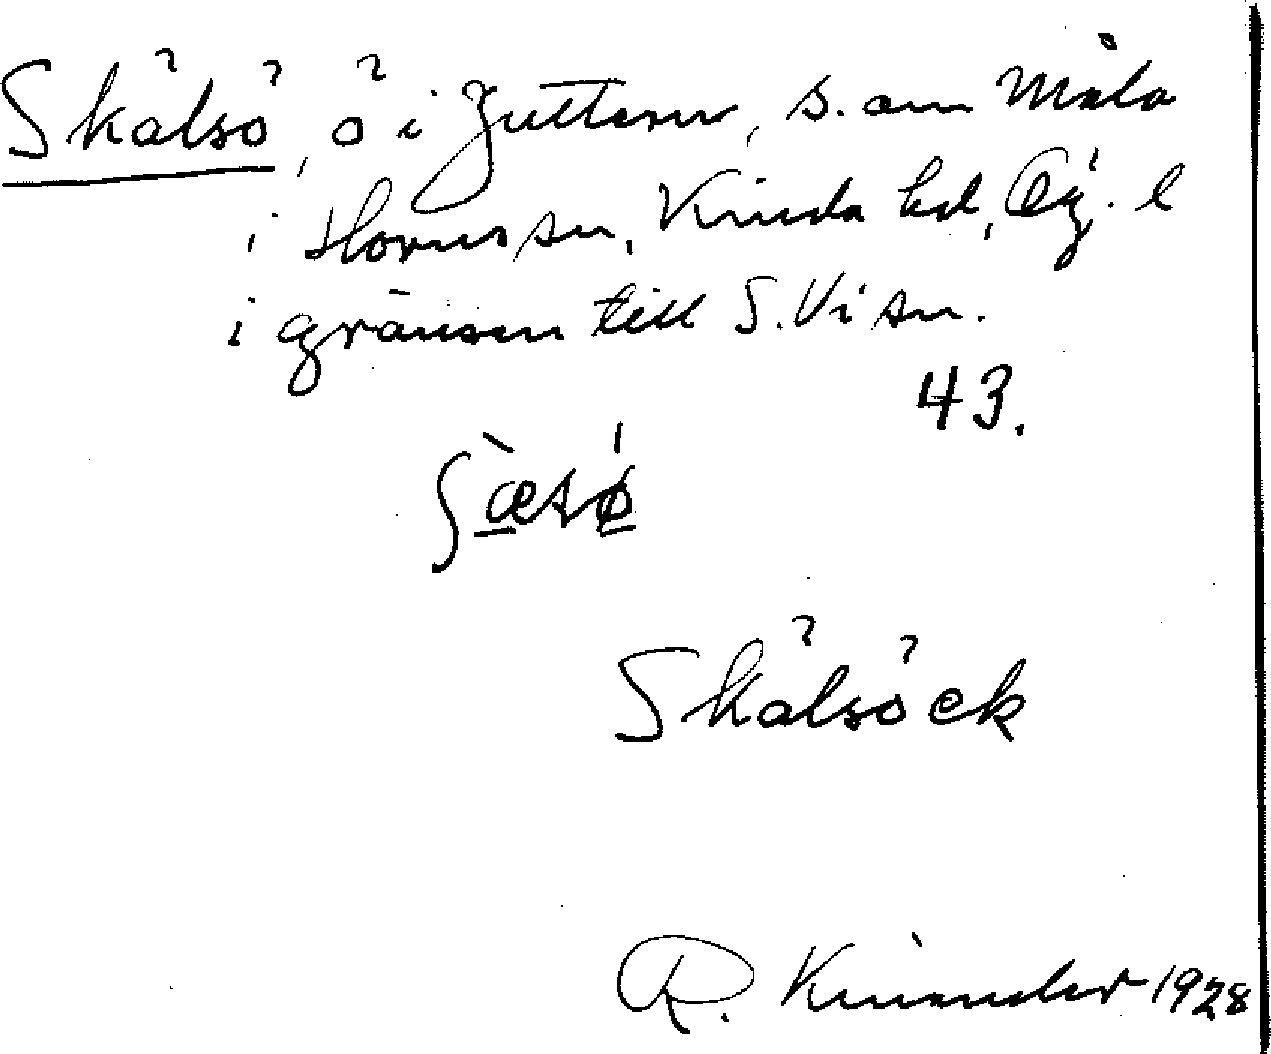 Skälsö, ö i Juttern, s. om Måla
i Horns sn, Kinda hd, Ög. l
i gränsen till S. Vi sn.
43.
ʃæ̀sø̍
Skälsöck
R. Kinander 1928